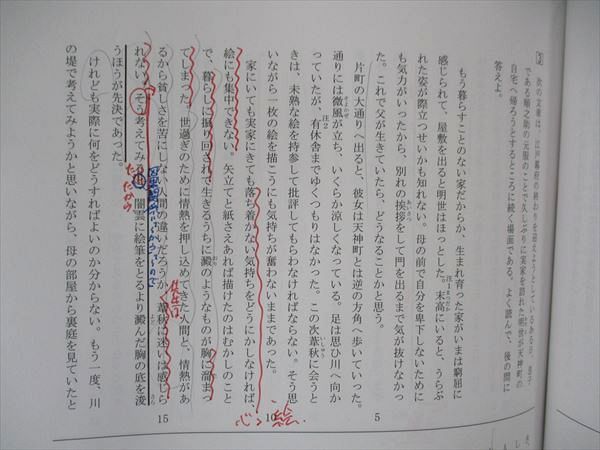 ３ 次の文章は、江戸幕府の終わりを迎えようとしているある日、息子
である順之助の元服のことで久しぶりに実家を訪れた明世が天神町の
自宅へ帰ろうとするところに続く場面である。よく読んで、後の問に
答えよ。
もう暮らすことのない家だからか、生まれ育った家がいまは窮屈に
感じられて、屋敷を出ると明世はほっとした。末高にいると、うらぶ
れた姿が際立つせいかも知れない。母の前で自分を卑下しないために
も気力がいったから、別れの挨拶をして門を出るまで気が抜けなかっ
た。これで父が生きていたら、どうなることかと思う。
片町の大通りへ出ると、彼女は天神町とは逆の方角へ歩いていった。
通りには微風が立ち、いくらか涼しくなっている。足は思ひ川へ向か
っていたが、有休舎までゆくつもりはなかった。この次葦秋に会うと
きは、未熟な絵を持参して批評してもらわなければならない。そう思
いながら一枚の絵を描こうにも気持ちが奮わないままであった。
家にいても実家にきても落ち着かない気持ちをどうにかしなければ、
絵にも集中できない。矢立てと紙さえあれば描けたのはむかしのこと
で、暮らしに振り回されて生きるうちに澱のようなものが胸に溜まっ
てしまった。世過ぎのために情熱を押し込めてきた人間と、情熱があ
るから貧しさを苦にしない人間の違いだろうか、葦秋に迷いは感じら
れない。そう考えてみれば、闇雲に絵筆をとるより澱んだ胸の底を浚
うほうが先決であった。
けれども実際に何をどうすればよいのか分からない。もう一度、川
の堤で考えてみようかと思いながら、母の部屋から裏庭を見ていたと
注１
注２
5
10
15
心≠絵
だから